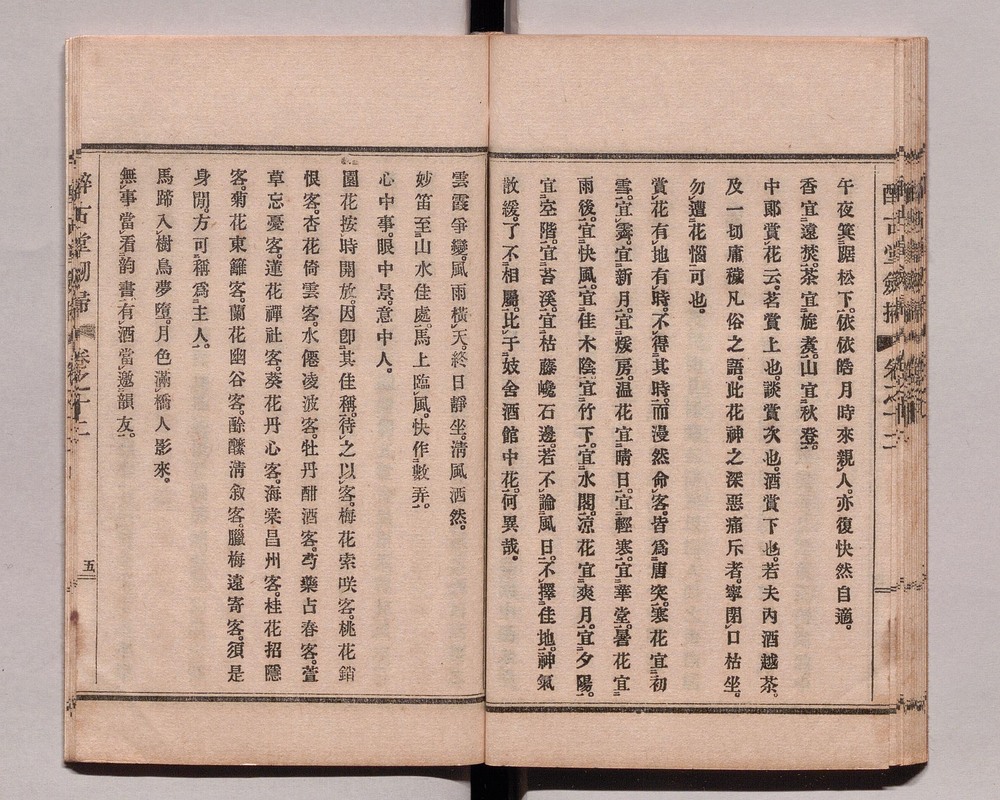 午夜箕踞松下。依依皓月時來親人。亦復快然自適。
香宜遠焚。茶宜旋煮。山宜秋登。
中郞賞花云。茗賞上也。談賞次也。酒賞下也。若夫內酒越茶。
及一切庸穢凡俗之語。此花神之深惡痛斥者。寧閉口枯坐。
勿遭花惱可也。
賞花有地有時。不得其時。而漫然命客。皆爲唐突。寒花宜初
雪。宜霽。宜新月。宜煖房。温花宜晴日。宜輕寒。宜華堂。暑花宜
雨後。宜快風。宜佳木陰。宜竹下。宜水閣。凉花宜爽月。宜夕陽。
宜空階。宜苔溪。宜枯藤巉石邊。若不論風日。不擇佳地。神氣
散緩。了不相屬。比于妓舍酒館中花。何異哉。
雲霞爭變。風雨橫天。終日靜坐。淸風洒然。
妙笛至山水佳處。馬上臨風。快作數弄。
心中事。眼中景。意中人。
園花按時開放。因卽其佳稱。待之以客。梅花索咲客。桃花銷
恨客。杏花倚雲客。水僊凌波客。牡丹酣酒客。芍藥占春客。萱
草忘憂客。蓮花禪社客。葵花丹心客。海棠昌州客。桂花招隱
客。菊花東籬客。蘭花幽谷客。酴醾淸敘客。臘梅遠寄客。須是
身閒方可稱爲主人。
馬蹄入樹鳥夢墮。月色滿橋人影來。
無事當看韵書。有酒當邀韻友。
醉古堂劒掃 卷之十二
五